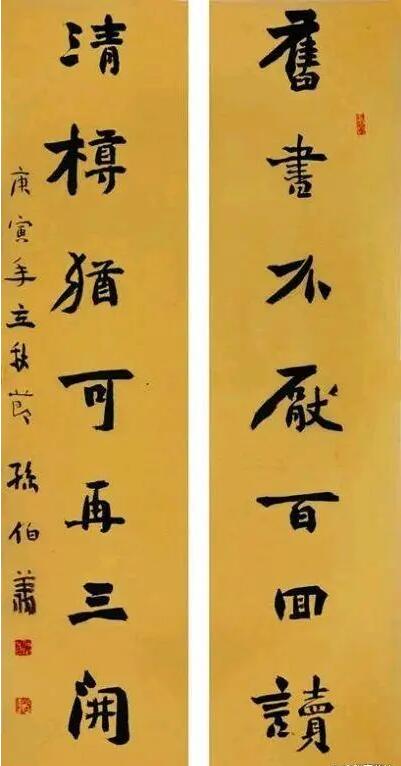 舊書不厭百回讀
清樽猶可再三開
庚寅年立秋節孫伯